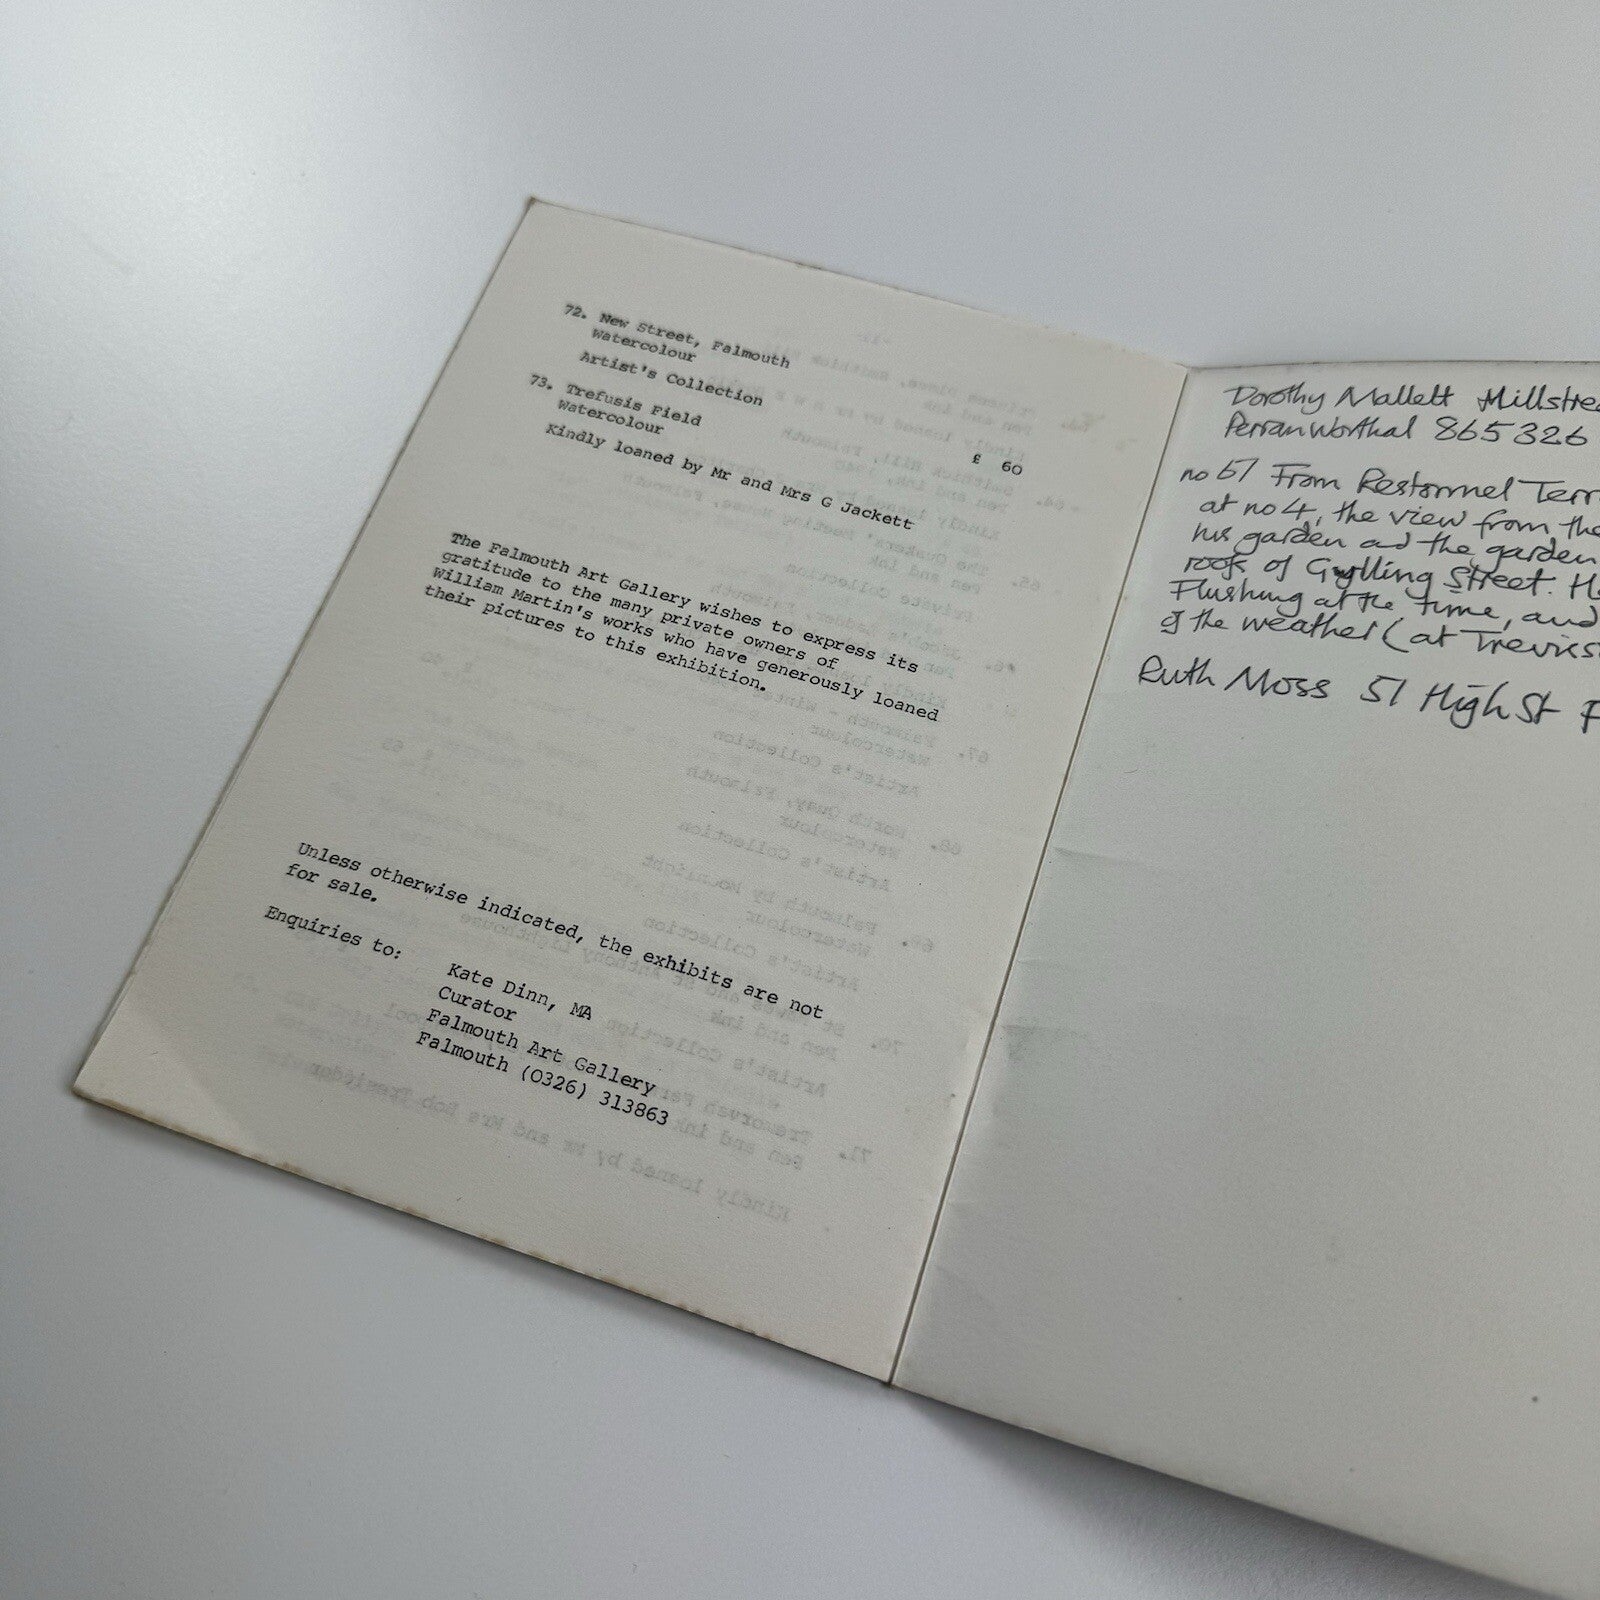 72. New Street, Falmouth
Watercolour
Artist's Collection
£ 60
73. Trefusis Field
Watercolour
Kindly loaned by Mr and Mrs G Jackett
The Falmouth Art Gallery wishes to express its
gratitude to the many private owners of
William Martin's works who have generously loaned
their pictures to this exhibition.
Unless otherwise indicated, the exhibits are not
for sale.
Enquiries to:
Kate Dinn, MA
Curator
Falmouth Art Gallery
Falmouth (0326) 313863
Dorothy Mallett Millstre
Perranworthal 865326
no 67 From Restormel Terr
at no 4, the view from the
his garden and the garden
roofs of Gylling Street. H
Flushing at the time, and
of the weather (at Treviss
Ruth Moss 51 High St F